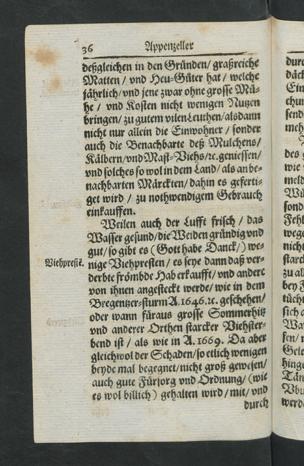 36 Appenzeller
deßgleichen in den Gründen/ graßreiche
Matten/ und Heu-Güter hat/ welche
jährlich/ und jene zwar ohne grosse Mü-
he/ und Kosten nicht wenigen Nutzen
bringen/ zu gutem vilen Leuthen/ als dann
nicht nur allein die Einwohner/ sonder
auch die Benachbarte deß Mulchens/
Kälbern/ und Mast-Viehs/ ꝛc. geniessen/
und solches so wol in dem Land/ als an be-
nachbarten Märckten/ dahin es geferti-
get wird/ zu nothwendigem Gebrauch
einkauffen.
Weilen auch der Lufft frisch/ das
Wasser gesund/ die Weiden gründig und
gut/ so gibt es (Gott habe Danck/) we-
Viehprestē.
nige Viehpresten/ es seye dann daß ver-
derbte frömbde Hab erkaufft/ und andere
von ihnen angesteckt werde/ wie in dem
Bregentzer-sturm A. 1646. ꝛc. geschehen/
oder wann füraus grosse Sommerhitz
und anderer Orthen starcker Viehster-
bend ist/ als wie in A. 1669. Da aber
gleichwol der Schaden/ so etlich wenigen
beyde mal begegnet/ nicht groß gewesen/
auch gute Fürsorg und Ordnung/ (wie
es wol billich) gehalten wird/ mit/ und
durch